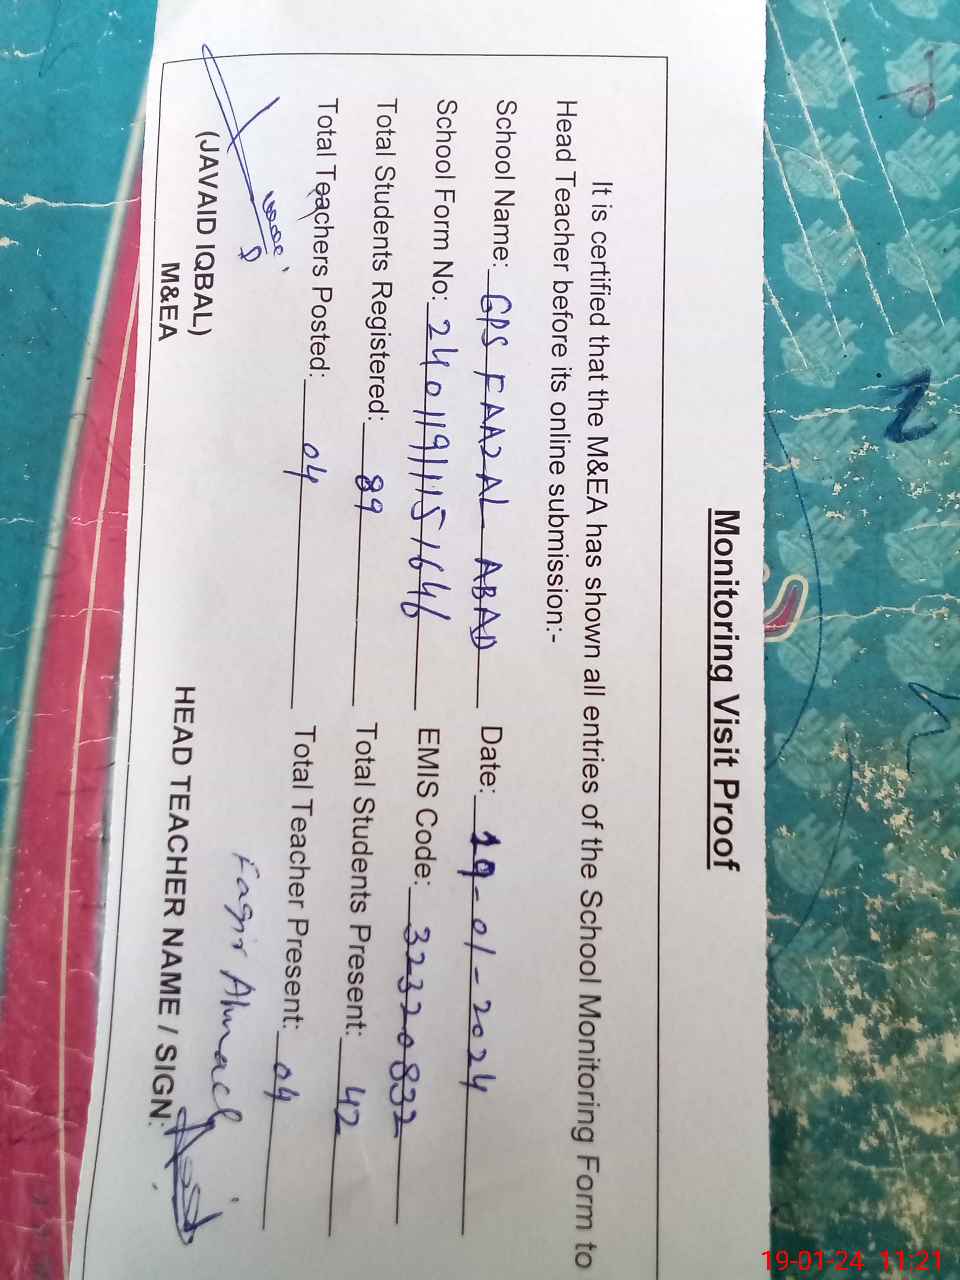 Monitoring Visit Proof
It is certified that the M&EA has shown all entries of the School Monitoring Form to
Head Teacher before its online submission:-
School Name: GPS FAAZAL ABAD Date: 19-01-2024
School Form No: 24011911151646 EMIS Code: 32320832
Total Students Registered: 89 Total Students Present: 42
Total Teachers Posted: 04 Total Teacher Present: 04
Faqir Ahmad
(JAVAID IQBAL)
M&EA HEAD TEACHER NAME / SIGN:
19-01-24 11:21